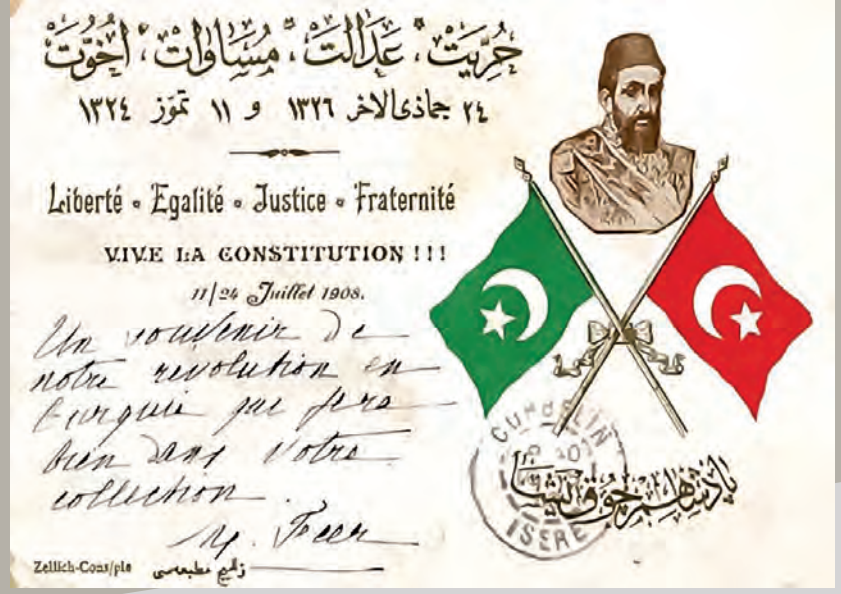 حريت، عدالت، مساوات، اخوت
٢٤ جماذى الاخر ١٣٢٦ و ١١ تموز ١٣٢٤
Liberté • Egalité • Justice • Fraternité
VIVE LA CONSTITUTION !!!
11/24 Juillet 1908.
Un souvenir de
notre revolution en
Turquie qui fera
bien dans votre
collection.
پادشاهم چوق یشا
ISERE
Zellich-Cons/ple زلیچ مطبعه‌سی